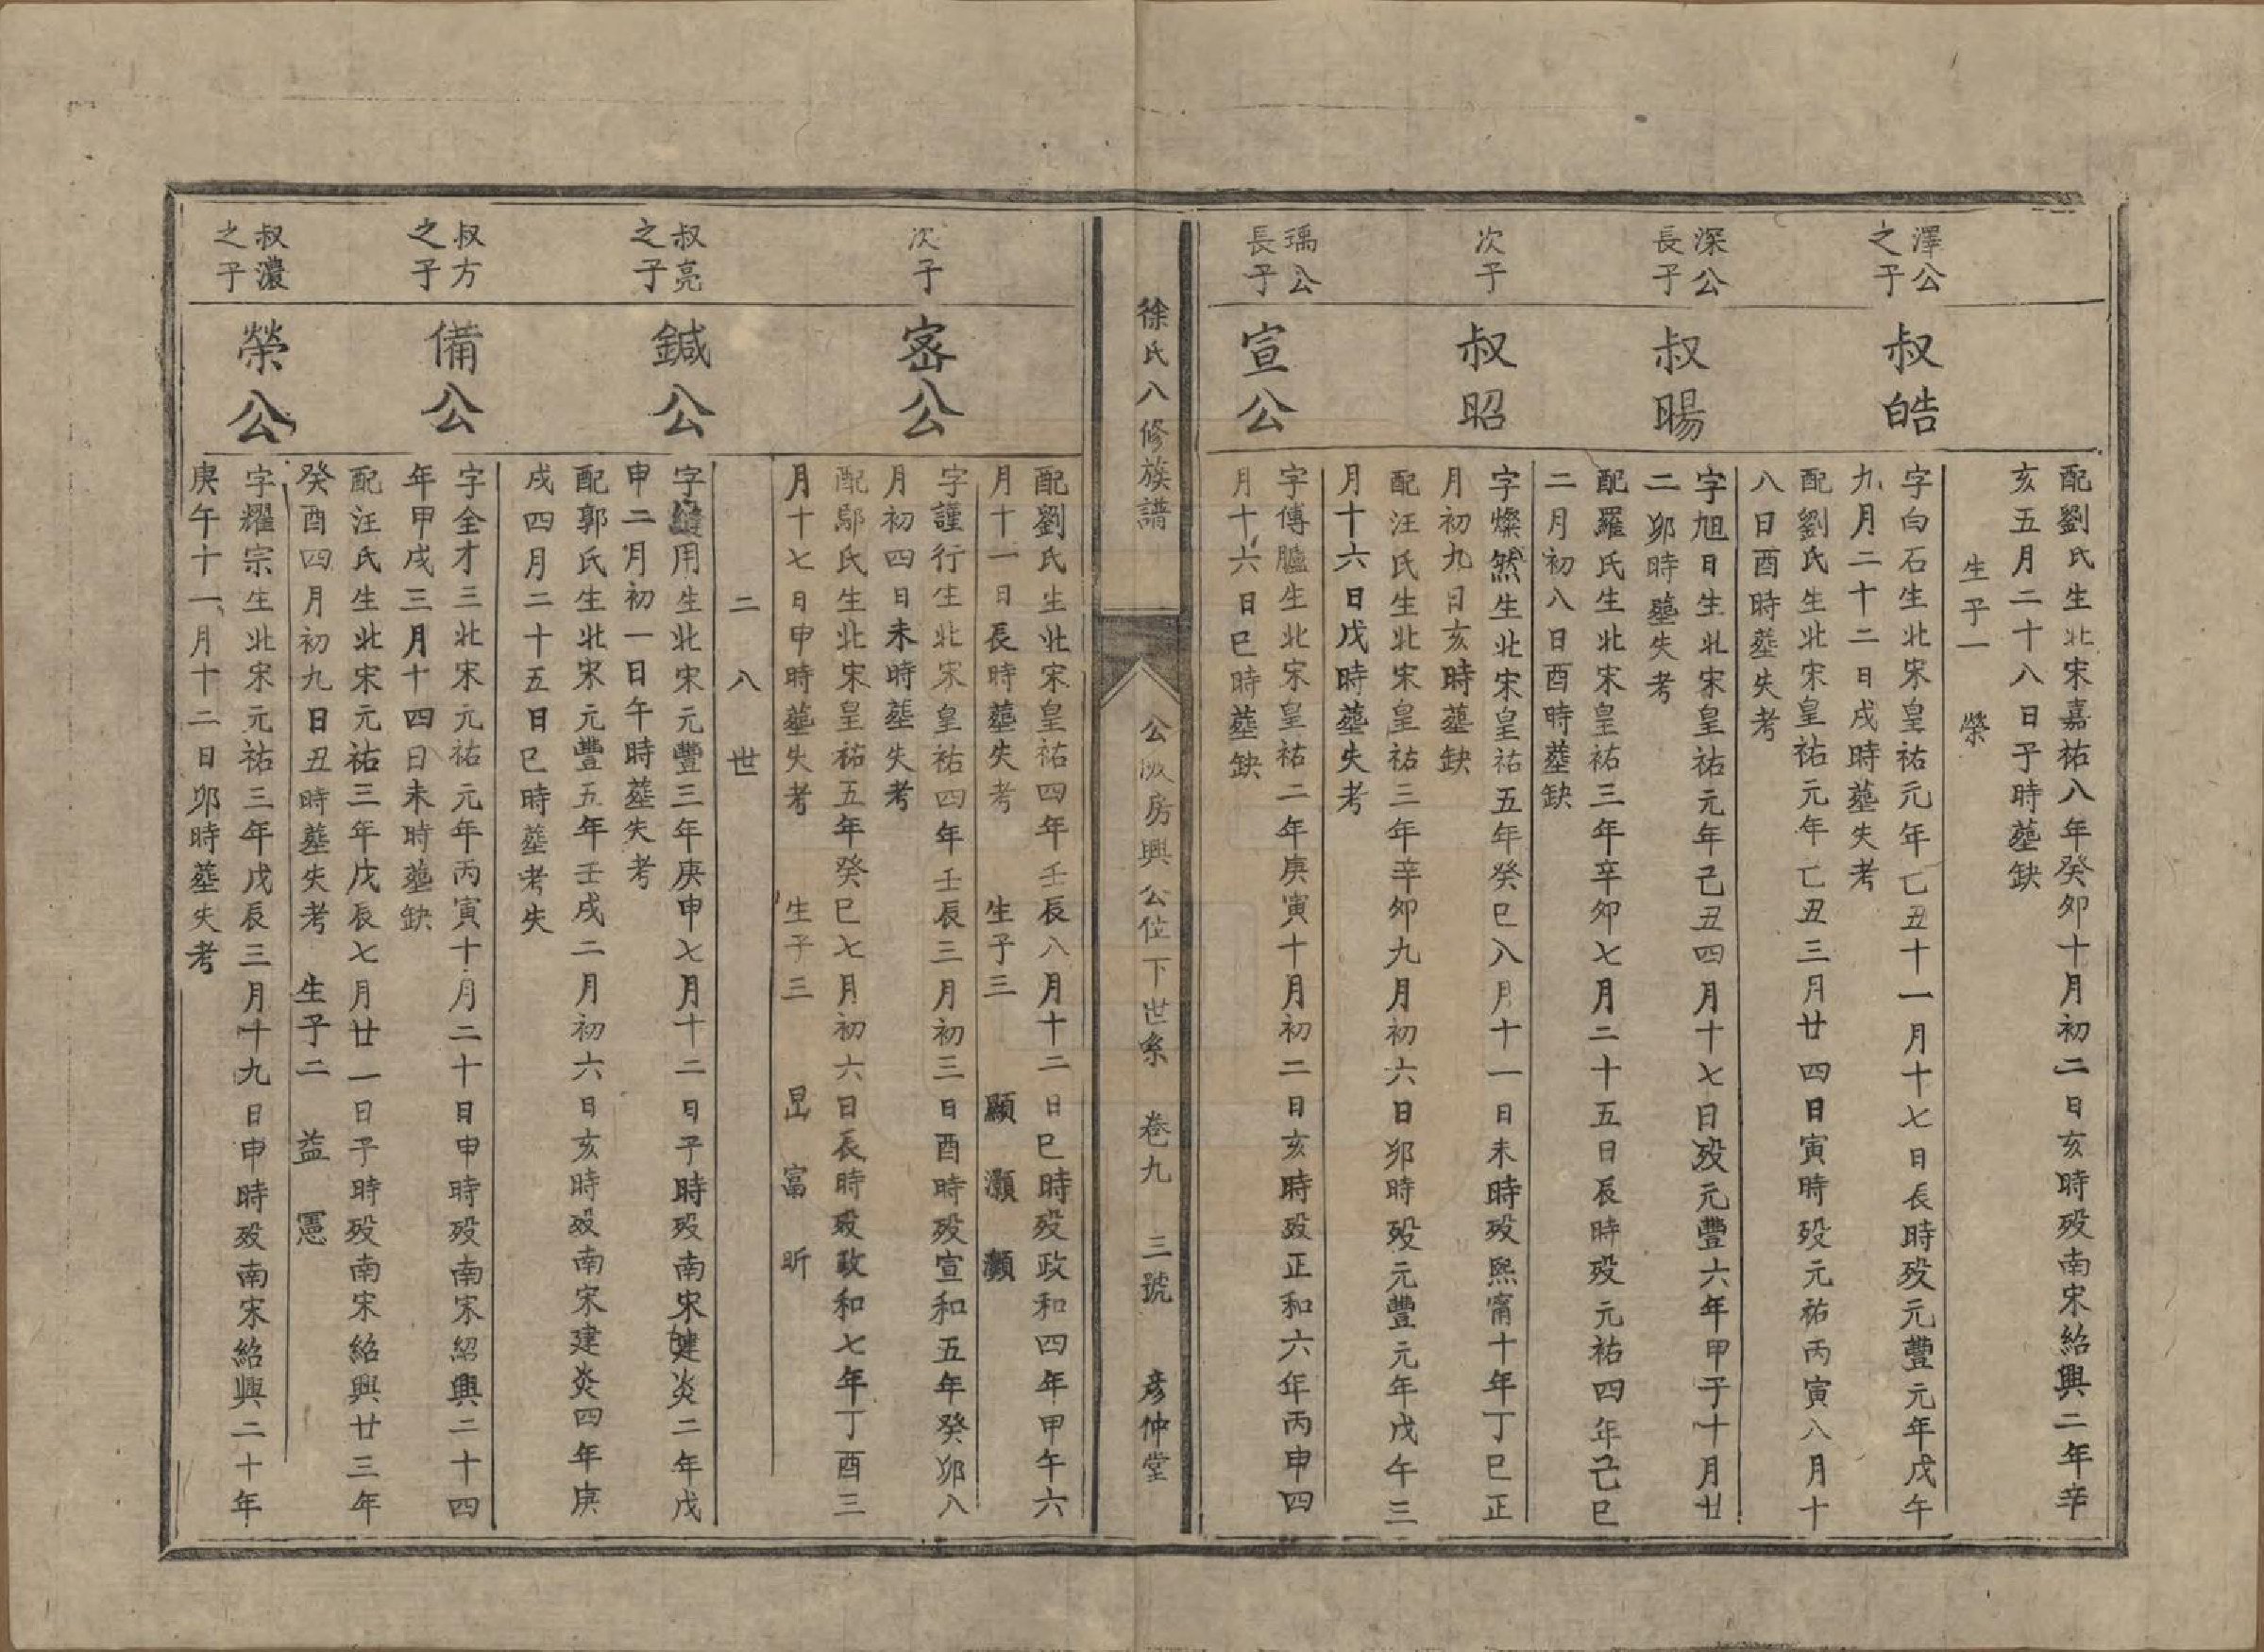 配劉氏生北宋嘉祐八年癸卯十月初二日亥時殁南宋紹興二年辛
亥五月二十八日子時塟缺
生子一 榮
澤公
之子
叔皓
字白石生北宋皇祐元年己丑十一月十七日長時殁元豐元年戊午
九月二十二日戌時塟失考
配劉氏生北宋皇祐元年己丑三月廿四日寅時殁元祐丙寅八月十
八日酉時塟失考
深公
長子
叔暘
字旭日生北宋皇祐元年己丑四月十七日殁元豐六年甲子十月廿
二卯時塟失考
配羅氏生北宋皇祐三年辛卯七月二十五日辰時殁元祐四年己巳
二月初八日酉時塟缺
次子
叔昭
字燦然生北宋皇祐五年癸巳八月十一日未時殁熙甯十年丁巳正
月初九日亥時塟缺
配汪氏生北宋皇祐三年辛卯九月初六日卯時殁元豐元年戊午三
月十六日戊時塟失考
瑀公
長子
宣公
字傅臚生北宋皇祐二年庚寅十月初二日亥時殁正和六年丙申四
月十六日巳時塟缺
徐氏八修族譜 公陂房興公位下世系 卷九 三號 彥仲堂
配劉氏生北宋皇祐四年壬辰八月十二日巳時殁政和四年甲午六
月十一日長時塟失考 生子三 顯 灝 灝
次子
宻公
字謹行生北宋皇祐四年壬辰三月初三日酉時殁宣和五年癸卯八
月初四日未時塟失考
配鄔氏生北宋皇祐五年癸巳七月初六日辰時殁政和七年丁酉三
月十七日申時塟失考 生子三 昆 富 昕
二八世
叔亮
之子
鍼公
字用生北宋元豐三年庚申七月十二日子時殁南宋建炎二年戊
申二月初一日午時塟失考
配郭氏生北宋元豐五年壬戌二月初六日亥時殁南宋建炎四年庚
戌四月二十五日巳時塟考失
叔方
之子
備公
字全才三北宋元祐元年丙寅十月二十日申時殁南宋紹興二十四
年甲戌三月十四日未時塟缺
配汪氏生北宋元祐三年戊辰七月廿一日子時殁南宋紹興廿三年
癸酉四月初九日丑時塟失考 生子二 益 憲
叔濃
之子
榮公
字耀宗生北宋元祐三年戊辰三月十九日申時殁南宋紹興二十年
庚午十一月十二日卯時塟失考